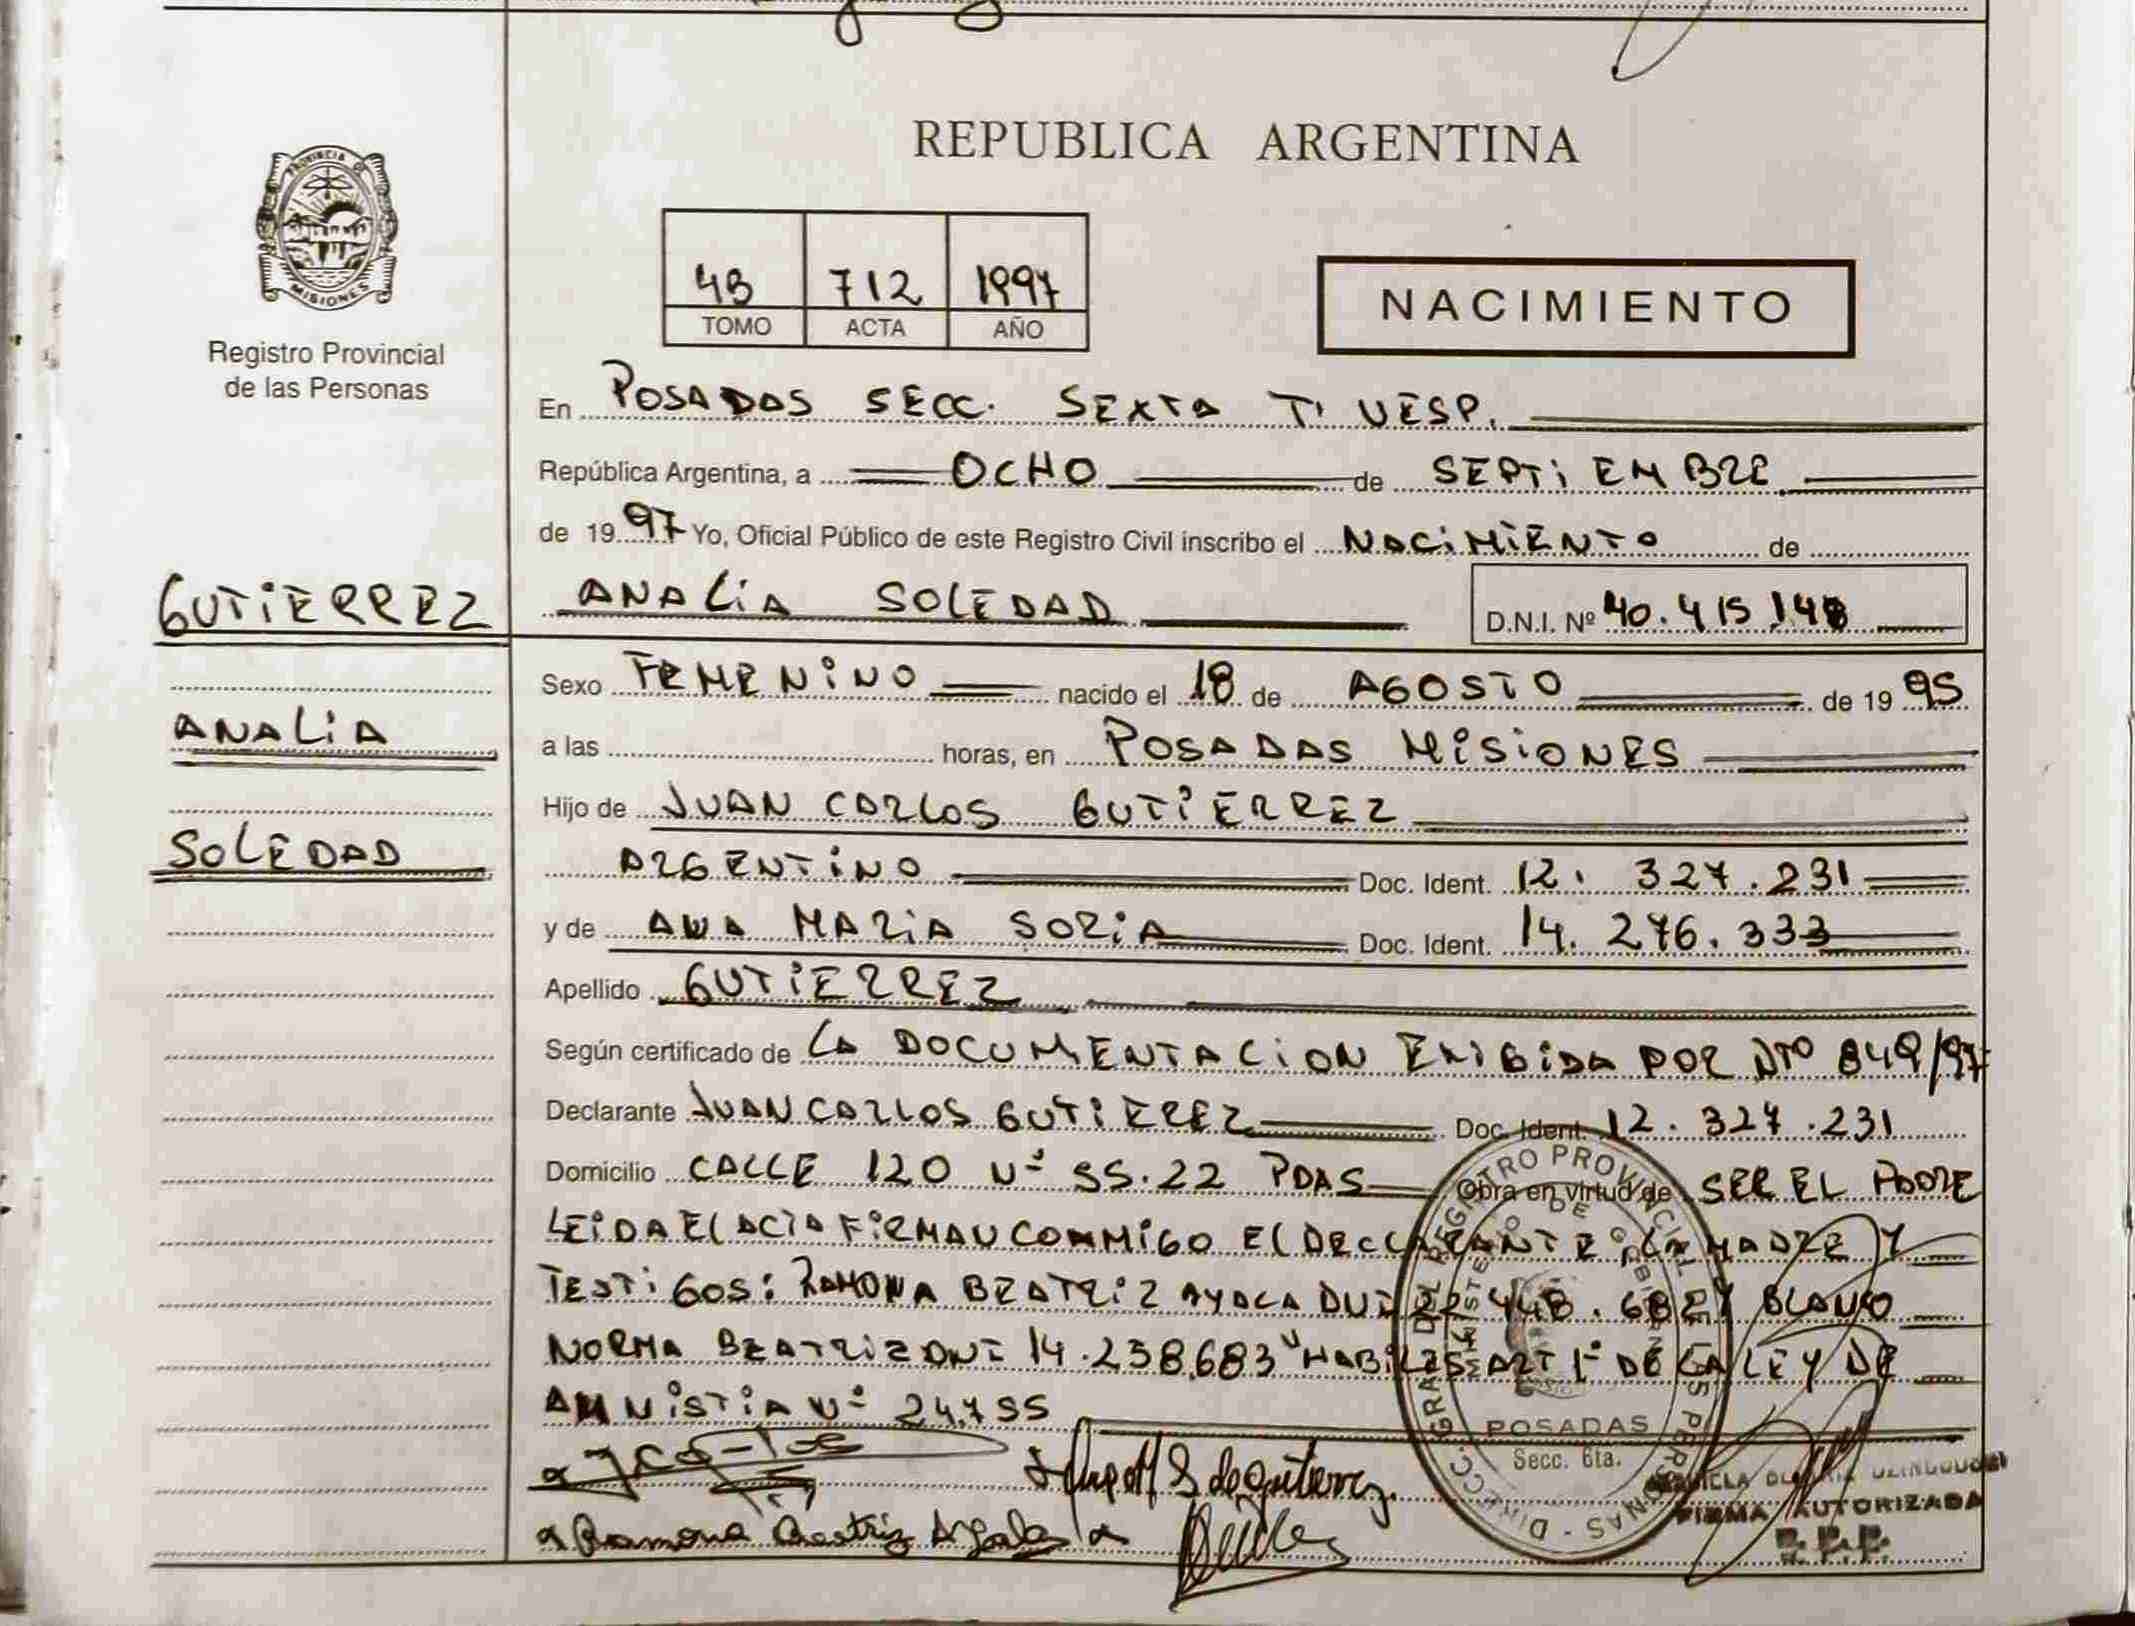 REPUBLICA ARGENTINA
PROVINCIA DE
MISIONES
Registro Provincial
de las Personas
4B 712 1997
TOMO ACTA AÑO
NACIMIENTO
En POSADAS SECC. SEXTA T' VESP.
República Argentina, a OCHO de SEPTiEMBRE
de 1997 Yo, Oficial Público de este Registro Civil inscribo el NACiMiENTO de
GUTiERREZ
ANALiA SOLEDAD
D.N.I. Nº 40.415.148
Sexo FEMENiNO nacido el 18 de AGOSTO de 1995
ANALiA
a las horas, en POSADAS MiSiONES
Hijo de JUAN CARLOS GUTiERREZ
SOLEDAD
ARGENTiNO Doc. Ident. 12. 327.231
y de ANA MARiA SORiA Doc. Ident. 14. 276.333
Apellido GUTiERREZ
Según certificado de LA DOCUMENTACiON EXIGiDA POR DTO 849/97
Declarante JUAN CARLOS GUTiEREZ Doc. Ident. 12. 327.231
Domicilio CALLE 120 Nº 55.22 PDAS Obra en virtud de SER EL PADRE
LEiDA El ACTA FiRMAN CONMiGO El DECLARANTE LA MADRE Y
TESTiGOS: RAMONA BEATRiZ AYALA DNI 22.448.682 Y BLANO
NORMA BEATRiZ DNI 14.238.683 HABiLES ART 1º DE LA LEY DE
AMNiSTiA Nº 24.755
Ramona Beatriz Ayala
DIRECC. GRAL. DEL REGISTRO PROVINCIAL DE LAS PERSONAS
MINISTERIO DE GOBIERNO
POSADAS
Secc. 6ta.
FIRMA AUTORIZADA
R.P.P.